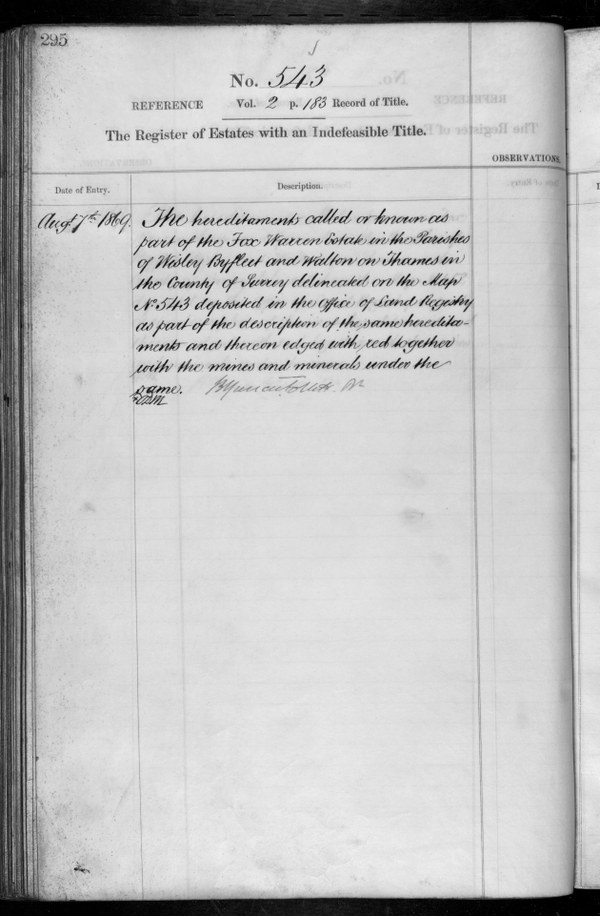 295
No. 543
REFERENCE Vol. 2 p. 183 Record of Title.
The Register of Estates with an Indefeasible Title.
OBSERVATIONS.
Date of Entry. Description.
Augt 7th 1869. The hereditaments called or known as
part of the Fox Warren Estate in the Parishes
of Wisley Byfleet and Walton on Thames in
the County of Surrey delineated on the Map
No 543 deposited in the Office of Land Registry
as part of the description of the same heredita-
ments and thereon edged with red together
with the mines and minerals under the
same.